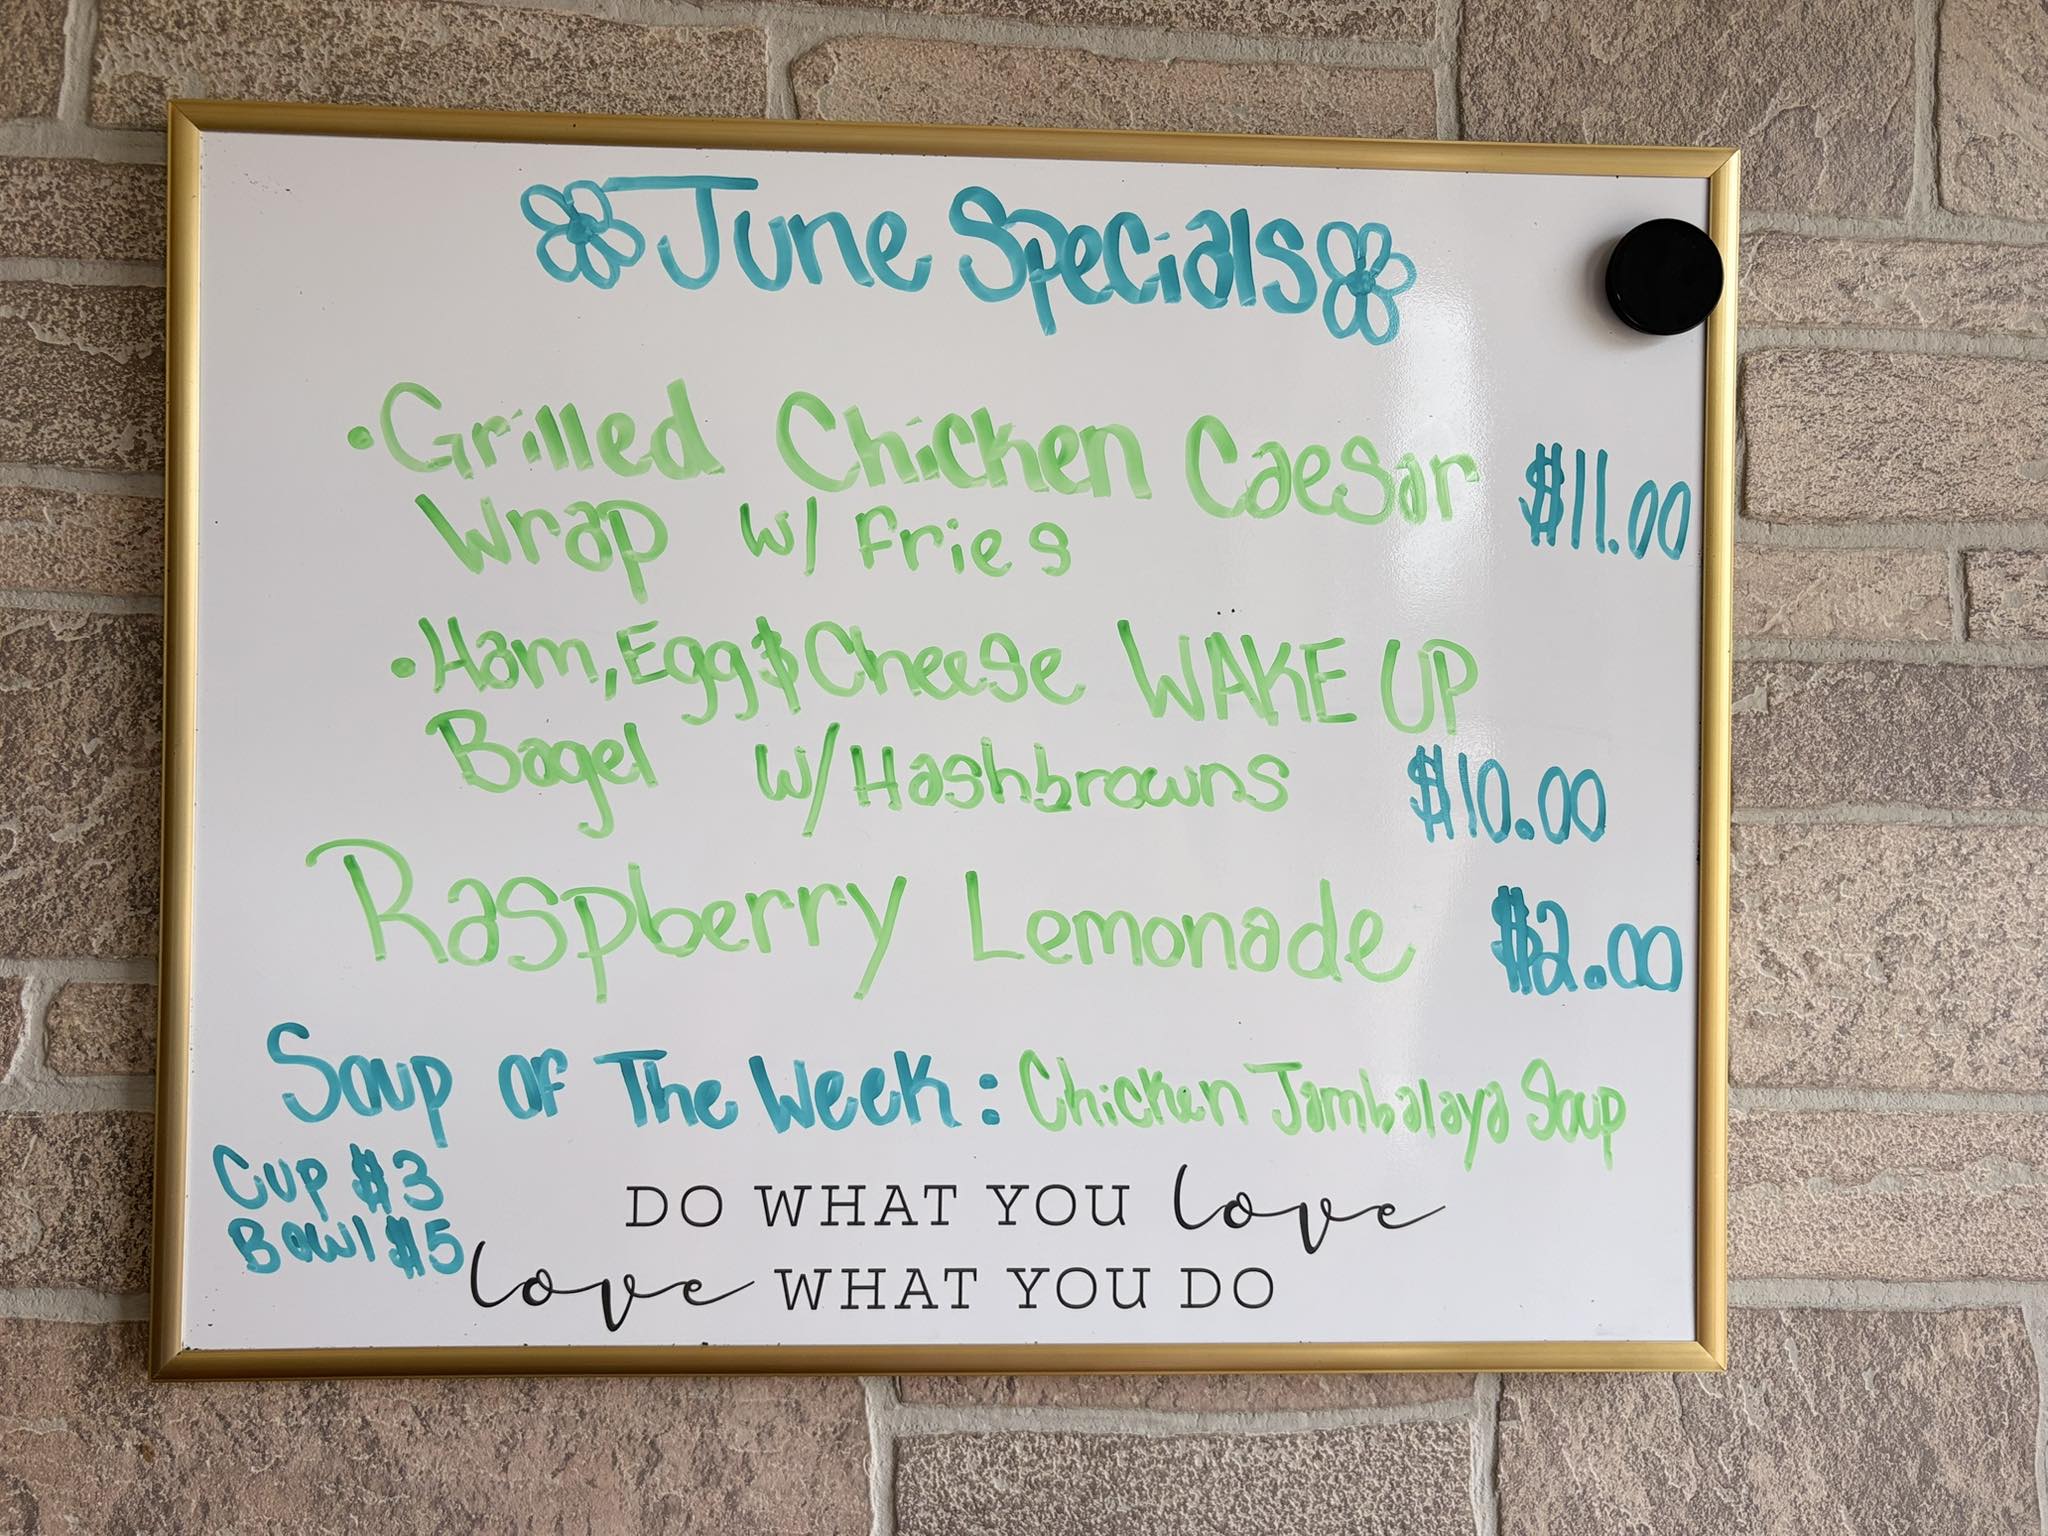 June Specials
•Grilled Chicken Caesar $11.00
Wrap w/ Fries
•Ham, Egg $ Cheese WAKE UP
Bagel w/ Hashbrowns $10.00
Raspberry Lemonade $2.00
Soup of The Week: Chicken Jambalaya Soup
Cup $3
Bowl $5
DO WHAT YOU love
love WHAT YOU DO